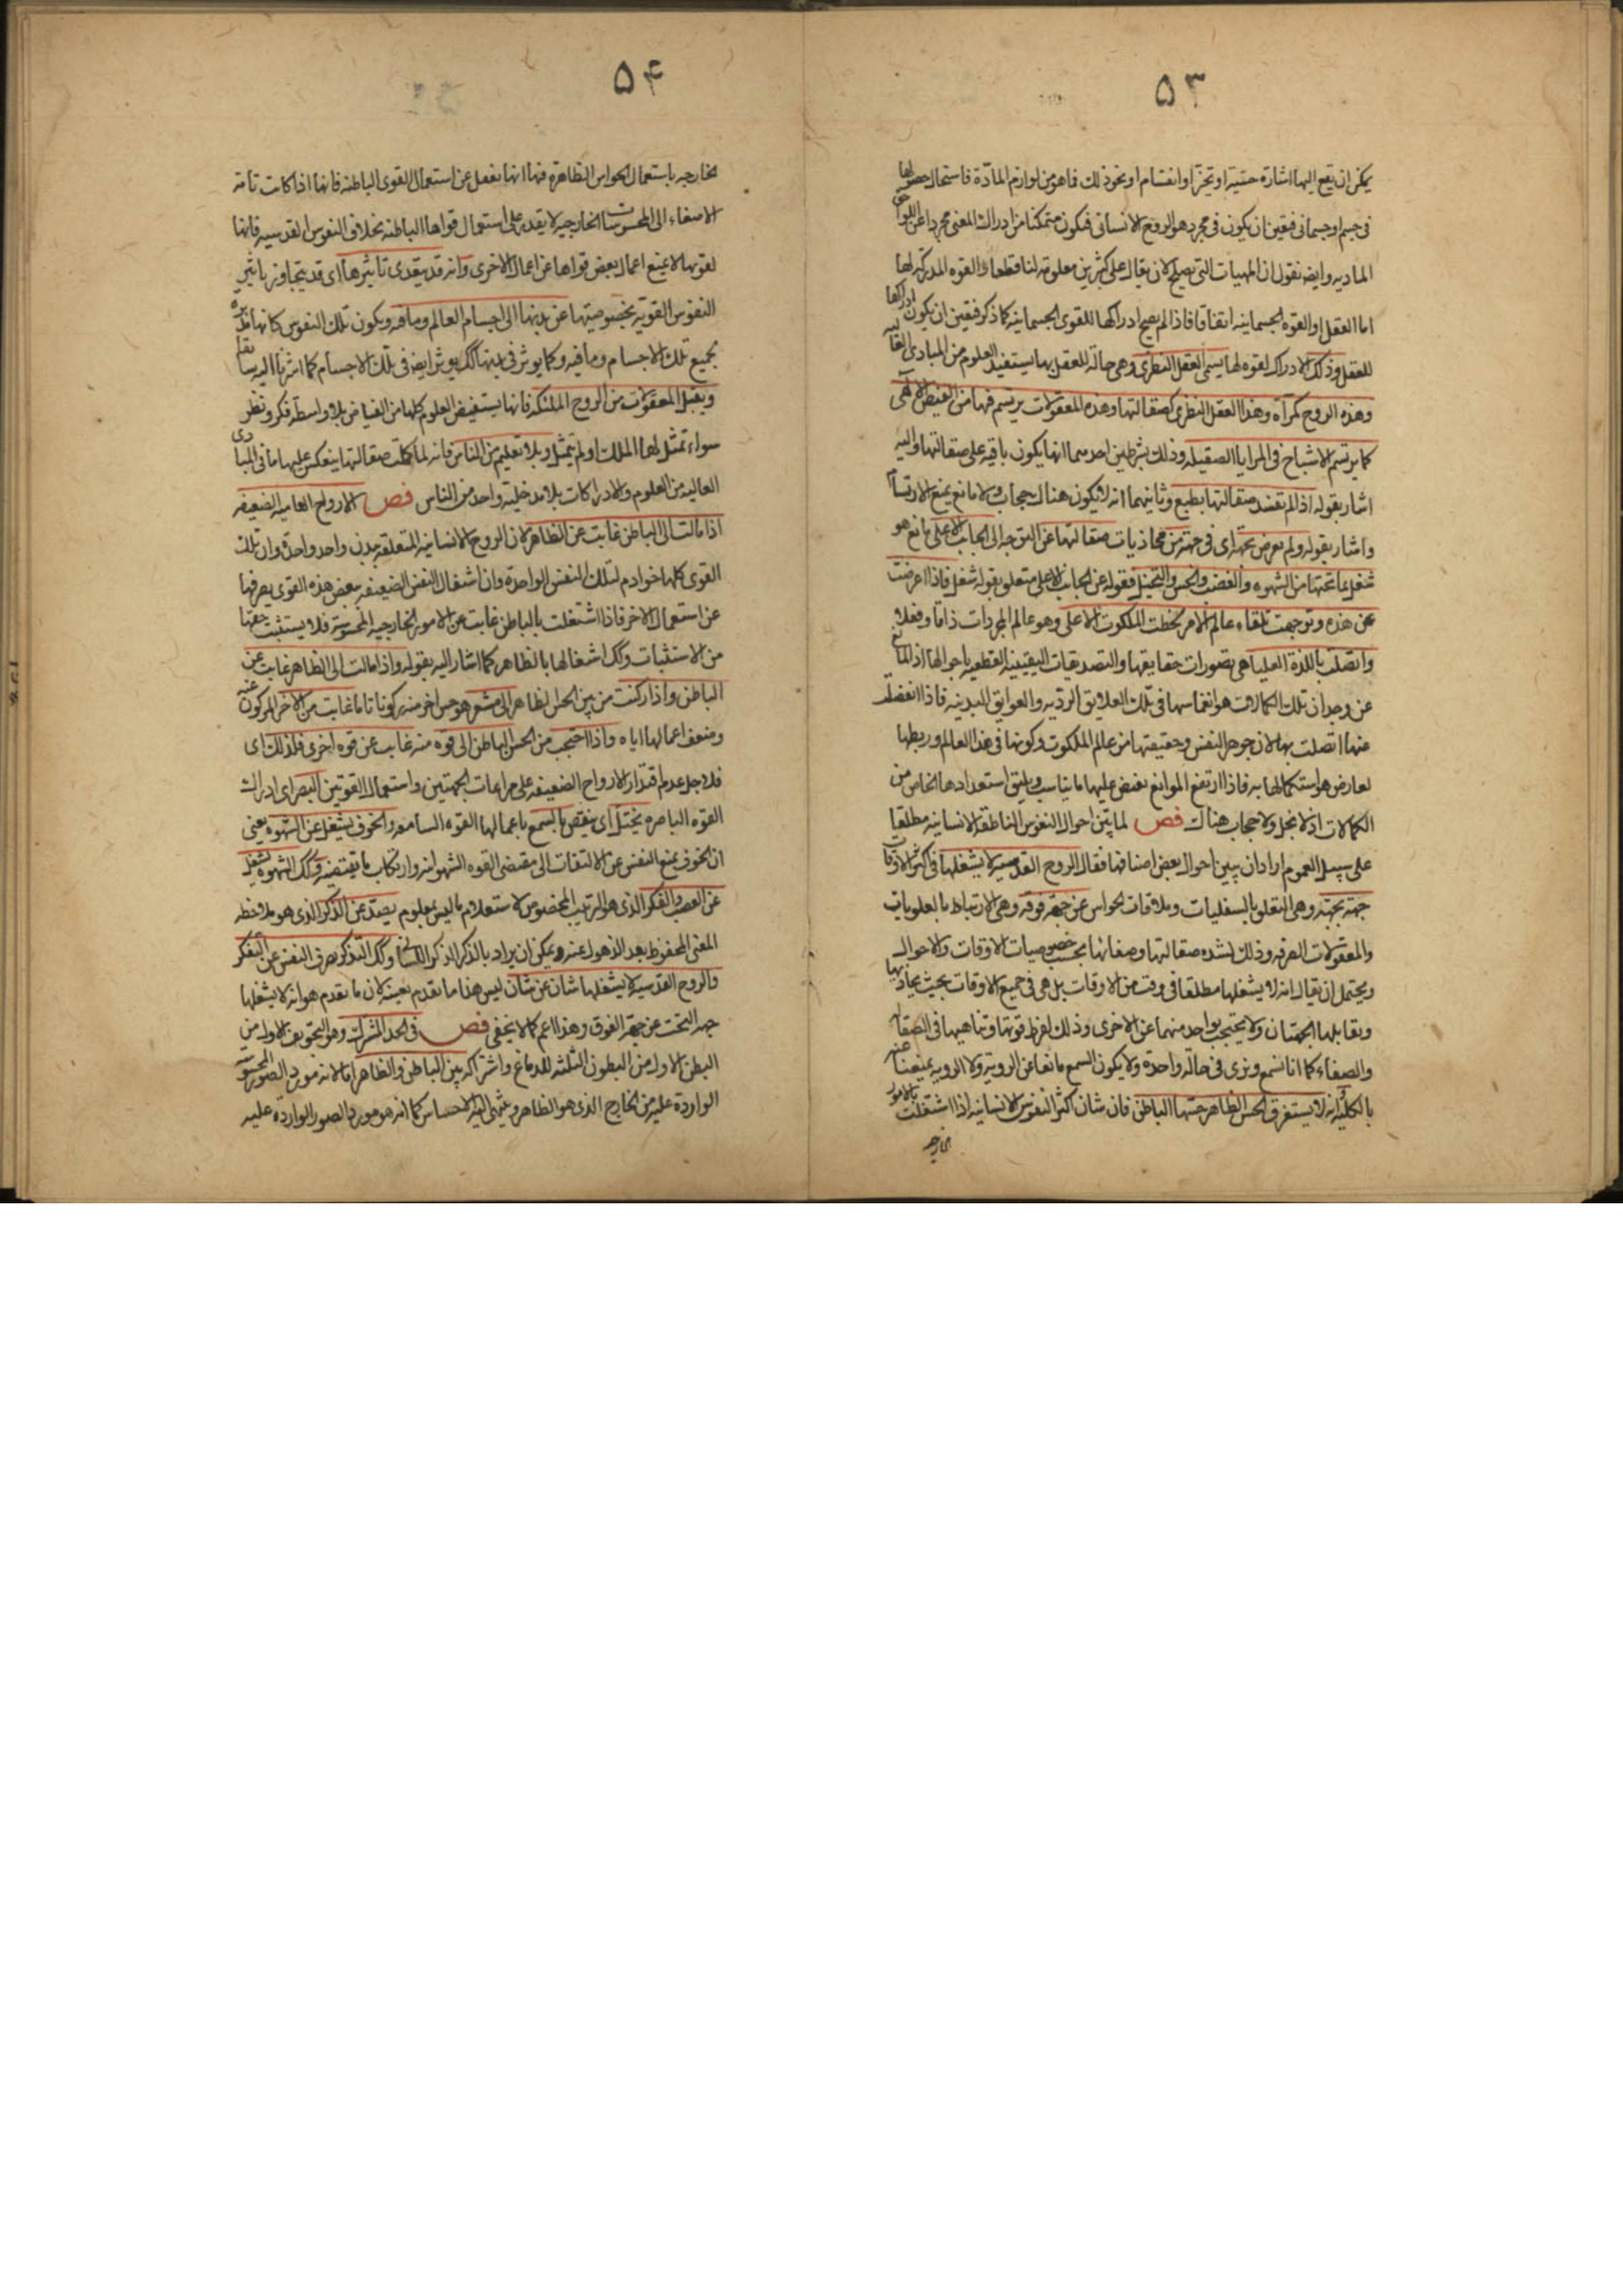 ۵۳
يمكن ان يقع اليها اشارة حسّية او تحيّز او انقسام او نحو ذلك مما هو من لوازم المادّة فاستحال حصولها
فى جسم او جسمانى فيتعين ان يكون فى مجرد هو الروح الانسانى فيكون متمكنا من ادراك المعنى مجردا عن اللواحق
الماديه وايضا نقول ان المهيات التى تصلح لان يقال على كثيرين معلومة لنا قطعا والقوه المدركة لها
اما العقل او القوه الجسمانيه اتفاقا فاذا لم يصح ادراكها للقوى الجسمانيه كما ذكر فيتعين ان يكون ادراكها
للعقل وذلك الادراك لقوه لها يسمى العقل النظرى وهى حالة للعقل بها يستفيد العلوم من المبادى العاليه
وهذه الروح كمرآة وهذا العقل النظرى كصقالتها وهذه المعقولات يرتسم فيها من الفيض الالهى
كما يرتسم الاشباح فى المرايا الصقيله وذلك بشرطين احدهما انها يكون باقيه على صقالتها واليه
اشار بقوله اذا لم تفسد صقالتها بطبع وثانيهما انه لا يكون هناك حجاب ولا مانع يمنع الارتسام
واشار بقوله ولم يعرض بجهة اى فى جهة من محاذيات صقالتها عن التوجه الى الجانب الاعلى مانع هو
شغل بما تحتها من الشهوه والغضب والحس والتخيل فقوله عن الجانب الاعلى متعلق بقوله شغل فاذا اعرضت
عن هذه وتوجهت تلقاء عالم الامر لحظت الملكوت الاعلى وهو عالم المجردات ذاتا وفعلا
واتصلت باللذة العليا هى تصورات حقايقها والتصديقات اليقينيه القطعيه باحوالها اذ المانع
عن وجدان تلك الكمالات هو انغماسها فى تلك العلايق الرديه والعوايق البدنيه فاذا انفصلت
عنها اتصلت بها لان جوهر النفس وحقيقتها من عالم الملكوت وكونها فى هذا العالم وربطها
لعارض هو استكمالها به فاذا ارتفع الموانع يفيض عليها ما يناسب ويليق استعدادها الخاص من
الكمالات اذ لا بخل ولا حجاب هناك فص لما بيّن احوال النفوس الناطقة الانسانيه مطلقا
على سبيل العموم اراد ان يبين احوال بعض اصنافها فقال الروح القدسية لا يشغلها فى اكثر الاوقات
جهة تحته وهى التعلق بالسفليات وملاقات الحواس عن جهة فوقه وهى الارتباط بالعلويات
والمعقولات الصرفه وذلك لشده صقالتها وصفائها بحسب خصوصيات الاوقات والاحوال
ويحتمل ان يقال انه لا يشغلها مطلقا فى وقت من الاوقات بل هى فى جميع الاوقات بحيث يحاذيها
ويقابلها الجهتان ولا يحتجب بواحد منهما عن الاخرى وذلك لفرط قوتها وتناهيها فى الصقالة
والصفاء كما انا نسمع ونرى فى حالة واحدة ولا يكون السمع مانعا عن الرويه ولا الرويه يمنعنا عنه
بالكليه انه لا يستغرق الحس الظاهر حسها الباطن فان شان اكثر النفوس الانسانيه اذا اشتغلت بالامور
الخارجه
۵۴
الخارجه باستعمال الحواس الظاهرة فيها انها يغفل عن استعمال القوى الباطنه فانها اذا كانت تامة
الاصغاء الى المحسوسات الخارجيه لا يقدر على استعمال قواها الباطنه بخلاف النفوس القدسيه فانها
لقوتها لا يمنع اعمال بعض قواها عن اعمال الاخرى وانه قد يتعدى تاثيرها اى قد يتجاوز تاثير
النفوس القويه بخصوصيتها عن بدنها الى اجسام العالم وما فيه ويكون تلك النفوس كانها مدبره
لجميع تلك الاجسام وما فيه وكما يوثر فى بدنها كك يوثر ايضا فى تلك الاجسام كما اشرنا اليه سابقا
ويقبل المعقولات من الروح الملكيه فانها يستفيض العلوم كلها من الفياض بلا واسطة فكر ونظر
سواء تمثل لها الملك او لم يتمثل وبلا تعليم من الناس فانه لما كملت صقالتها ينعكس عليها ما فى المبادى
العاليه من العلوم والادراكات بلا مدخلية واحد من الناس فص الارواح العاميه الضعيفه
اذا مالت الى الباطن غابت عن الظاهر لان الروح الانسانيه المتعلقه ببدن واحد واحدة وان تلك
القوى كلها خوادم لتلك النفس الواحدة وان اشتغال النفس الضعيفه ببعض هذه القوى يصرفها
عن استعمال الاخر فاذا اشتغلت بالباطن غابت عن الامور الخارجيه المحسوسة فلا يستثبت حقها
من الاستثبات وكك اشغالها بالظاهر كما اشار اليه بقوله واذا مالت الى الظاهر غابت عن
الباطن واذا ركنت من بين الحس الظاهر الى مشعر هو حس اخر منه ركونا تاما غابت من الاخر المركون عنه
وضعف اعمالها اياه واذا احتجب من الحس الباطن الى قوه منه غابت عن قوه اخرى فلذلك اى
فلاجل عدم اقتدار الارواح الضعيفه على مراعات الجهتين واستعمال القوتين البصر اى ادراك
القوه الباصره يختل اى ينقص بالسمع باعمالها القوه السامعه والخوف يشغل عن الشهوه يعنى
ان الخوف يمنع النفس عن الالتفات الى مقتضى القوه الشهوانيه وارتكاب ما يقتضيه وكك الشهوه يشغل
عن الغضب والفكر الذى هو الترتيب المخصوص لاستعلام ما ليس بمعلوم يصد عن الذكر الذى هو ملاحظه
المعنى المحفوظ بعد الذهول عنه ويمكن ان يراد بالذكر الذكر اللسانى وكك التذكر يصرف النفس عن التفكر
والروح القدسيه لا يشغلها شان عن شان ليس هذا ما تقدم بعينه لان ما تقدم هو انه لا يشغلها
جهة التحت عن جهة الفوق وهذا اعم كما لا يخفى فص فى الحد المشترك وهو التجويف الاول من
البطن الاول من البطون الثلثه للدماغ واشتراكه بين الباطن والظاهر اما لانه مورد الصور المحسوسة
الواردة عليه من الخارج الذى هو الظاهر وينتهى اليه الاحساس كما انه هو مورد الصور الوارده عليه